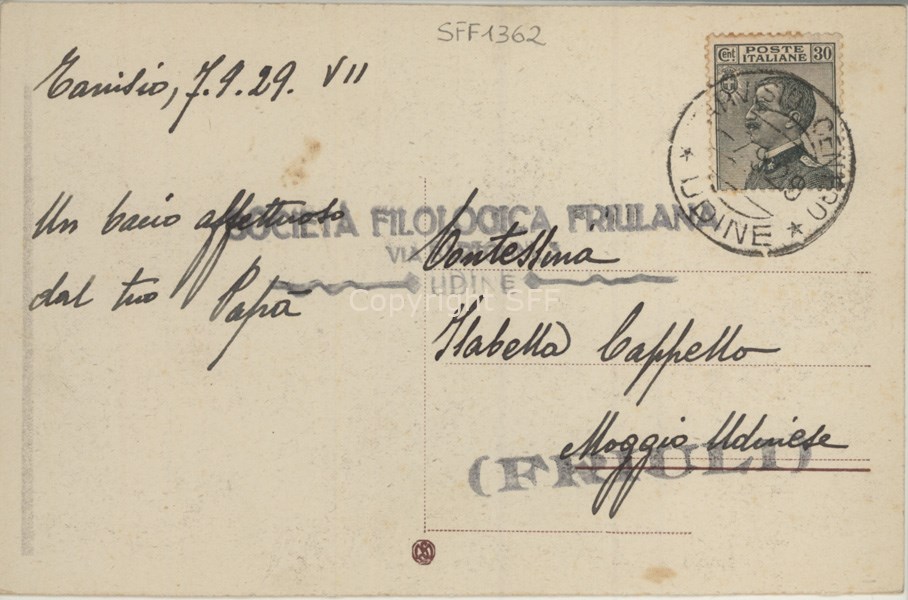 SFF1362
Cent POSTE ITALIANE 30
Tarvisio, 7.9.29. VII
UDINE
Un bacio affettuoso
dal tuo Papà
SOCIETÀ FILOLOGICA FRIULANA
VIA
UDINE
Copyright SFF
Contessina
Isabella Cappello
Moggio Udinese
(FRIULI)